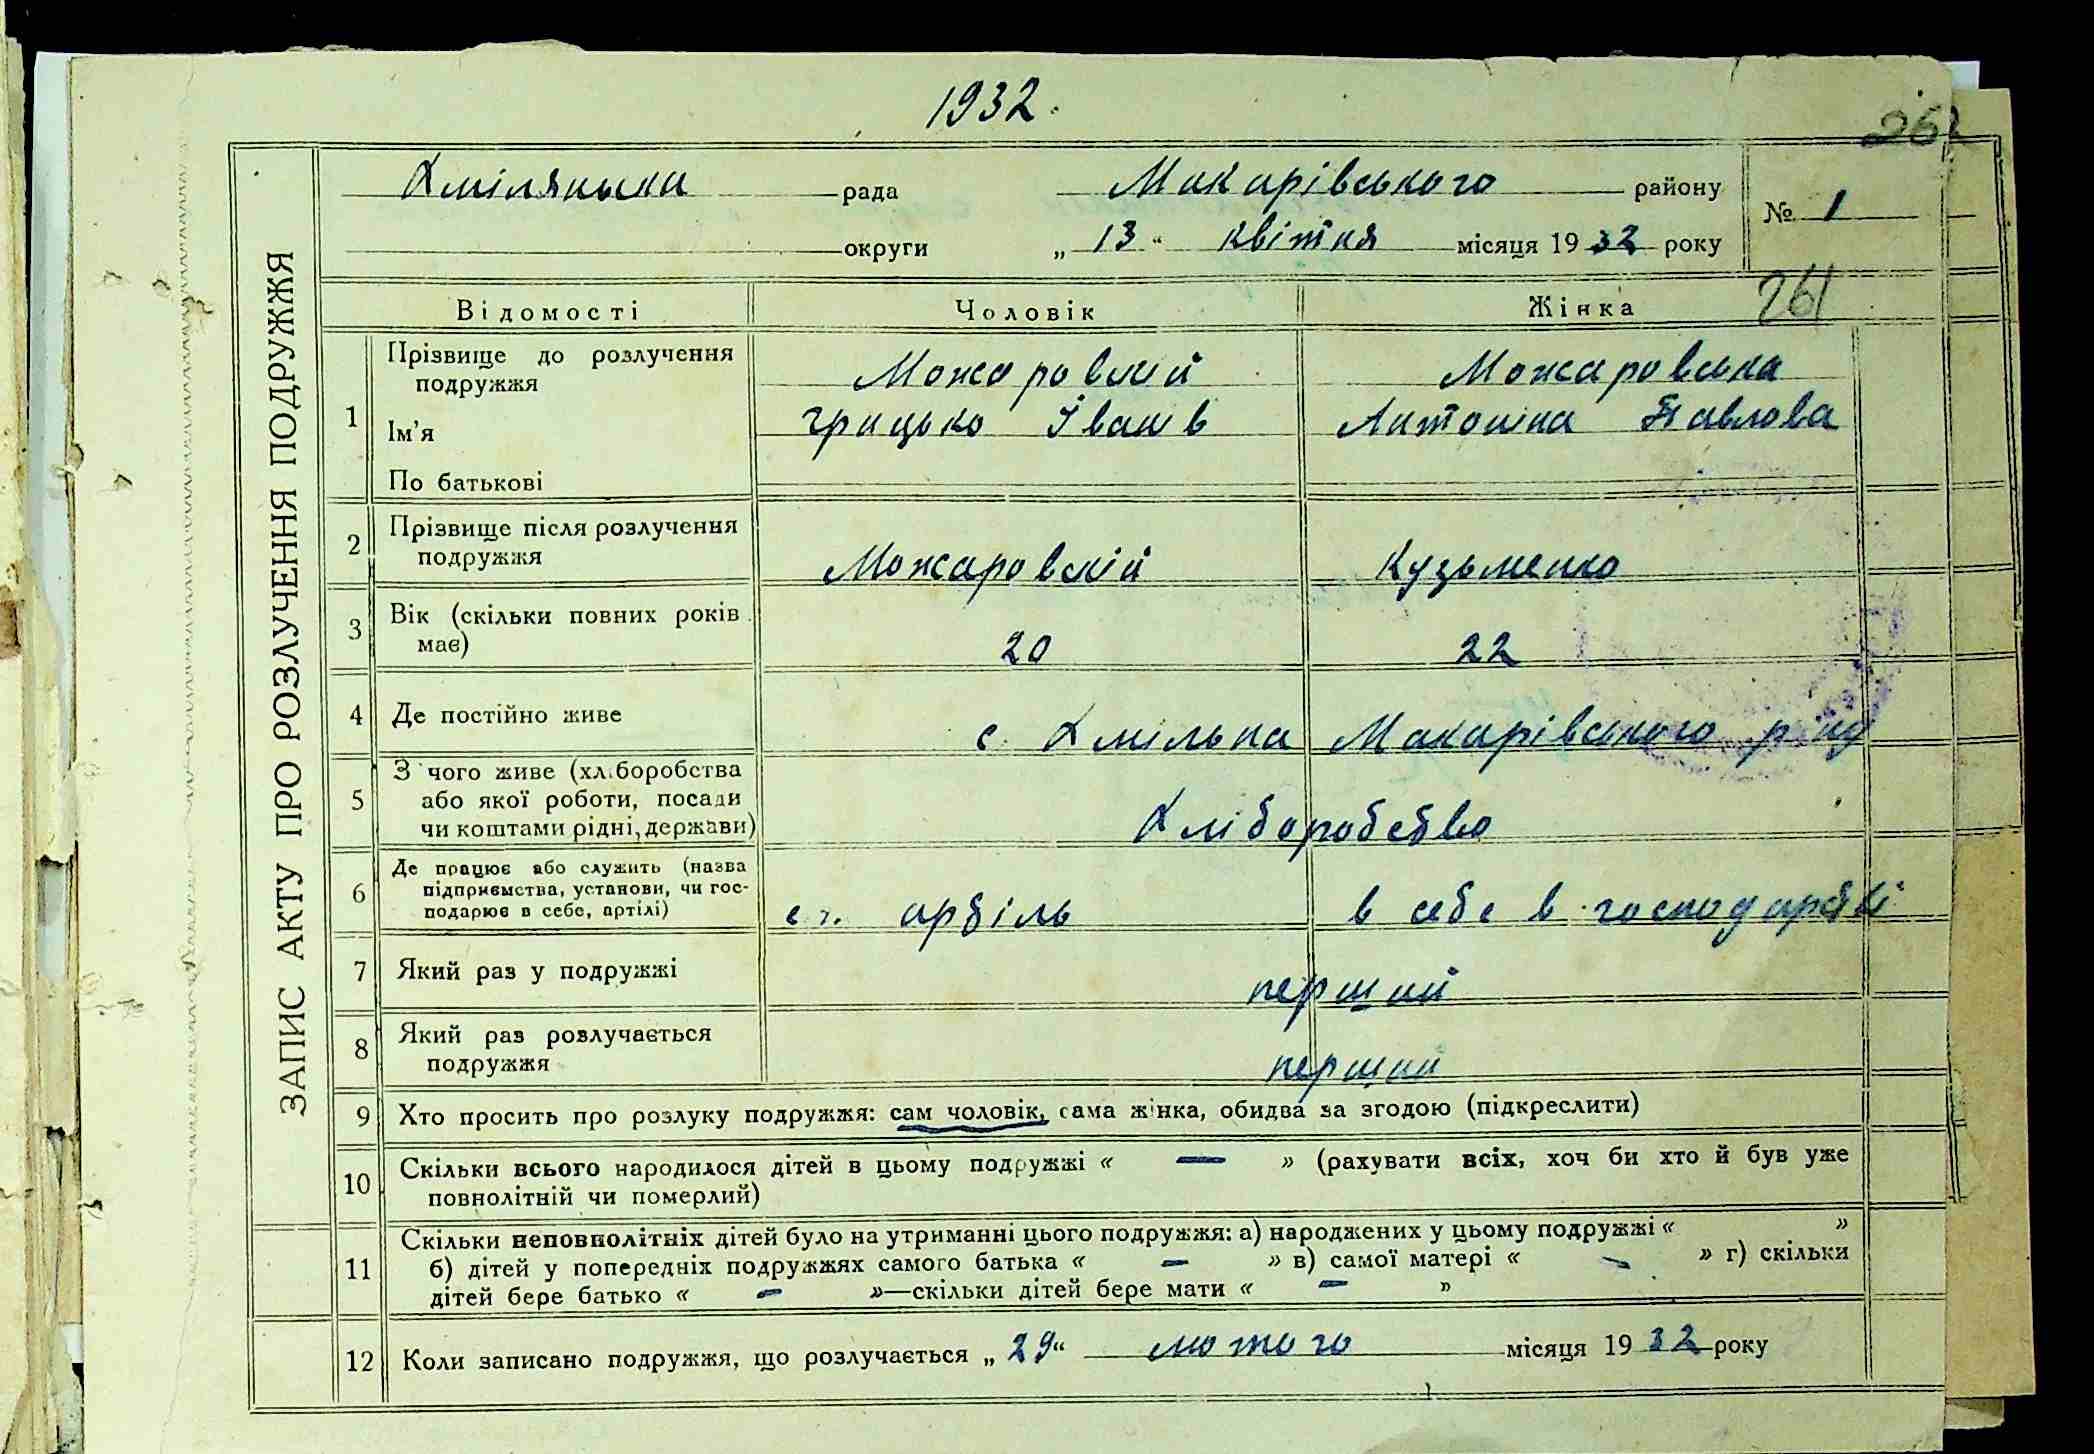 1932.
262
Хмілянська рада Макарівського району
№ 1
округи „ 13 “ квітня місяця 19 32 року
ЗАПИС АКТУ ПРО РОЗЛУЧЕННЯ ПОДРУЖЖЯ
Відомості Чоловік Жінка 261
1 Прізвище до розлучення подружжя Можаровский Можаровська
Ім'я Грицько Іванів Антоніна Павлова
По батькові
2 Прізвище після розлучення
подружжя Можаровский Кузьменко
3 Вік (скільки повних років
має) 20 22
4 Де постійно живе с. Хмільна Макарівського р-ну
5 З чого живе (хліборобства
або якої роботи, посади
чи коштами рідні, держави) Хліборобство
6 Де працює або служить (назва
підприємства, установи, чи гос-
подарює в себе, артілі) с.г. артіль в себе в господарстві
7 Який раз у подружжі перший
8 Який раз розлучається
подружжя перший
9 Хто просить про розлуку подружжя: сам чоловік, сама жінка, обидва за згодою (підкреслити)
10 Скільки всього народилося дітей в цьому подружжі « — » (рахувати всіх, хоч би хто й був уже
повнолітній чи померлий)
11 Скільки неповнолітніх дітей було на утриманні цього подружжя: а) народжених у цьому подружжі « »
б) дітей у попередніх подружжях самого батька « — » в) самої матері « — » г) скільки
дітей бере батько « — »—скільки дітей бере мати « — »
12 Коли записано подружжя, що розлучається „ 29 “ лютого місяця 19 32 року